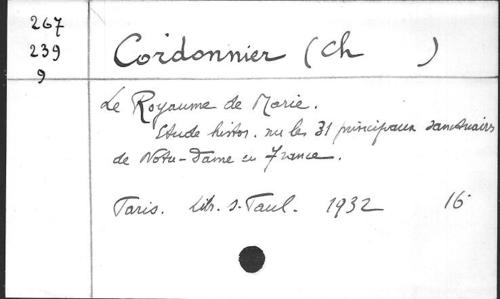 267
239
9
Cordonnier (Ch )
Le Royaume de Marie.
Etude histor. sur les 31 principaux sanctuaires
de Notre-Dame en France.
Paris. Libr. S. Paul. 1932 16